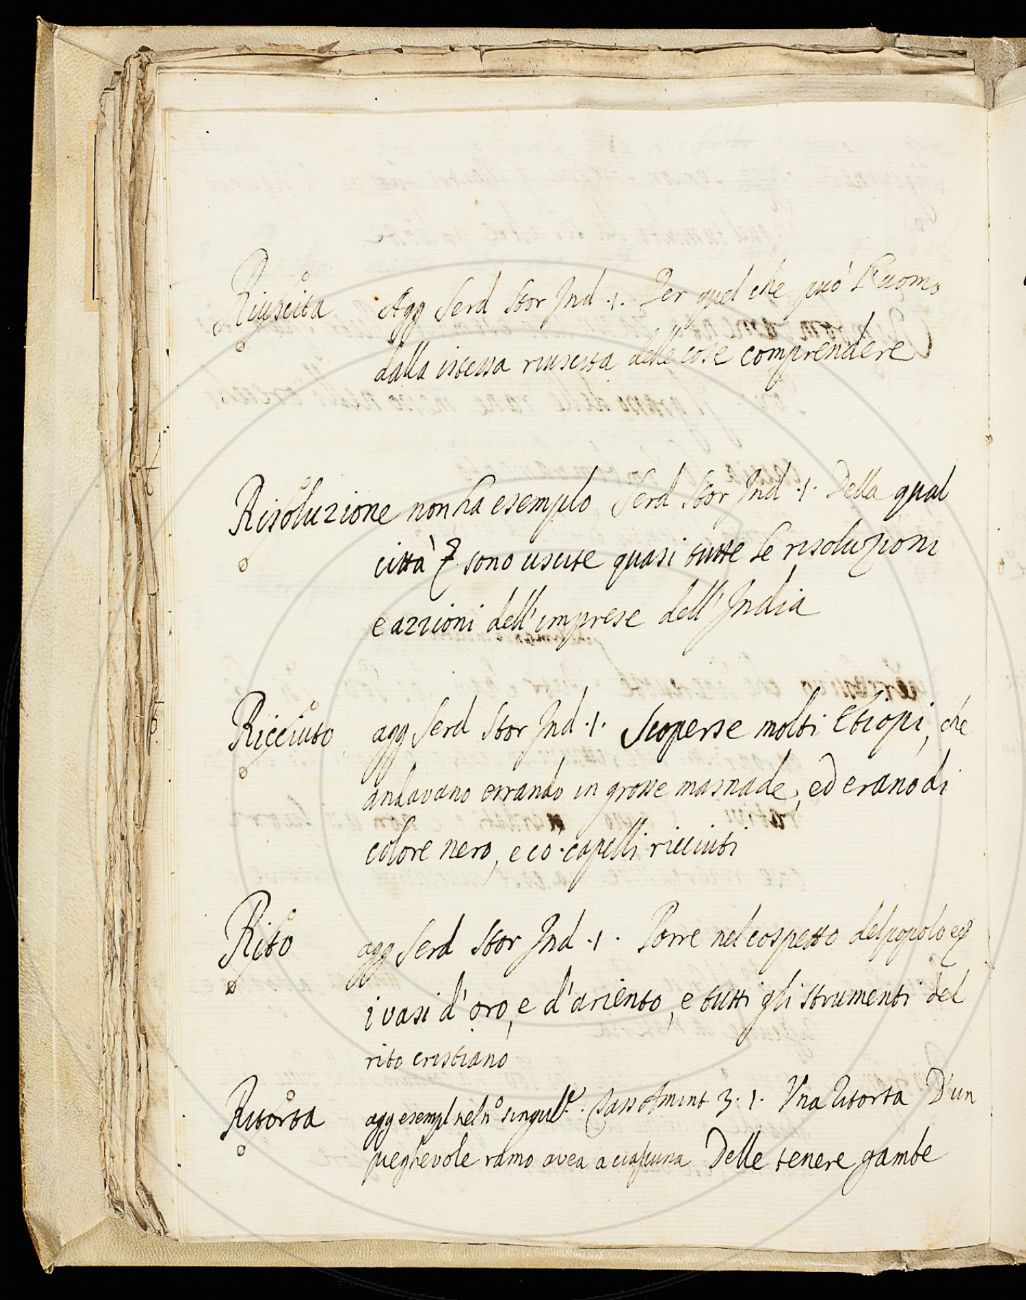 Riuscita Agg Serd Stor Ind .1. Per quel che può l'huomo
dalla istessa riuscita delle cose comprendere
Risoluzione non ha esemplo Serd Stor Ind .1. Della qual
città sono uscite quasi tutte le risoluzioni
e azzioni dell'imprese dell'India
Ricciuto agg Serd Stor Ind .1. Scoperse molti Etiopi, che
andavano errando in grosse masnade, ed erano di
colore nero, e co' capelli ricciuti
Rito agg Serd Stor Ind .1. Porre nel cospetto del popolo
i vasi d'oro, e d'ariento, e tutti gli strumenti del
rito cristiano
Ritorta agg esempl nel n° singul.e 3.1. Una ritorta D'un
pieghevole ramo avea a ciascuna Delle tenere gambe